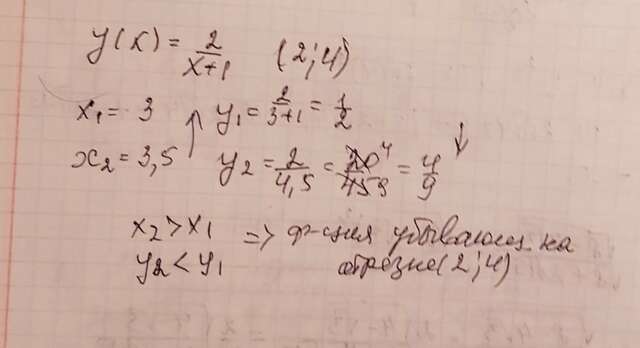 y(x) = 2/(x+1) (2;4)
x₁ = 3 ↑ y₁ = 2/(3+1) = 1/2
x₂ = 3,5 y₂ = 2/4,5 = 20/45 = 4/9 ↓
x₂ > x₁ => ф-ция убывающ. на
y₂ < y₁ отрезке (2;4)